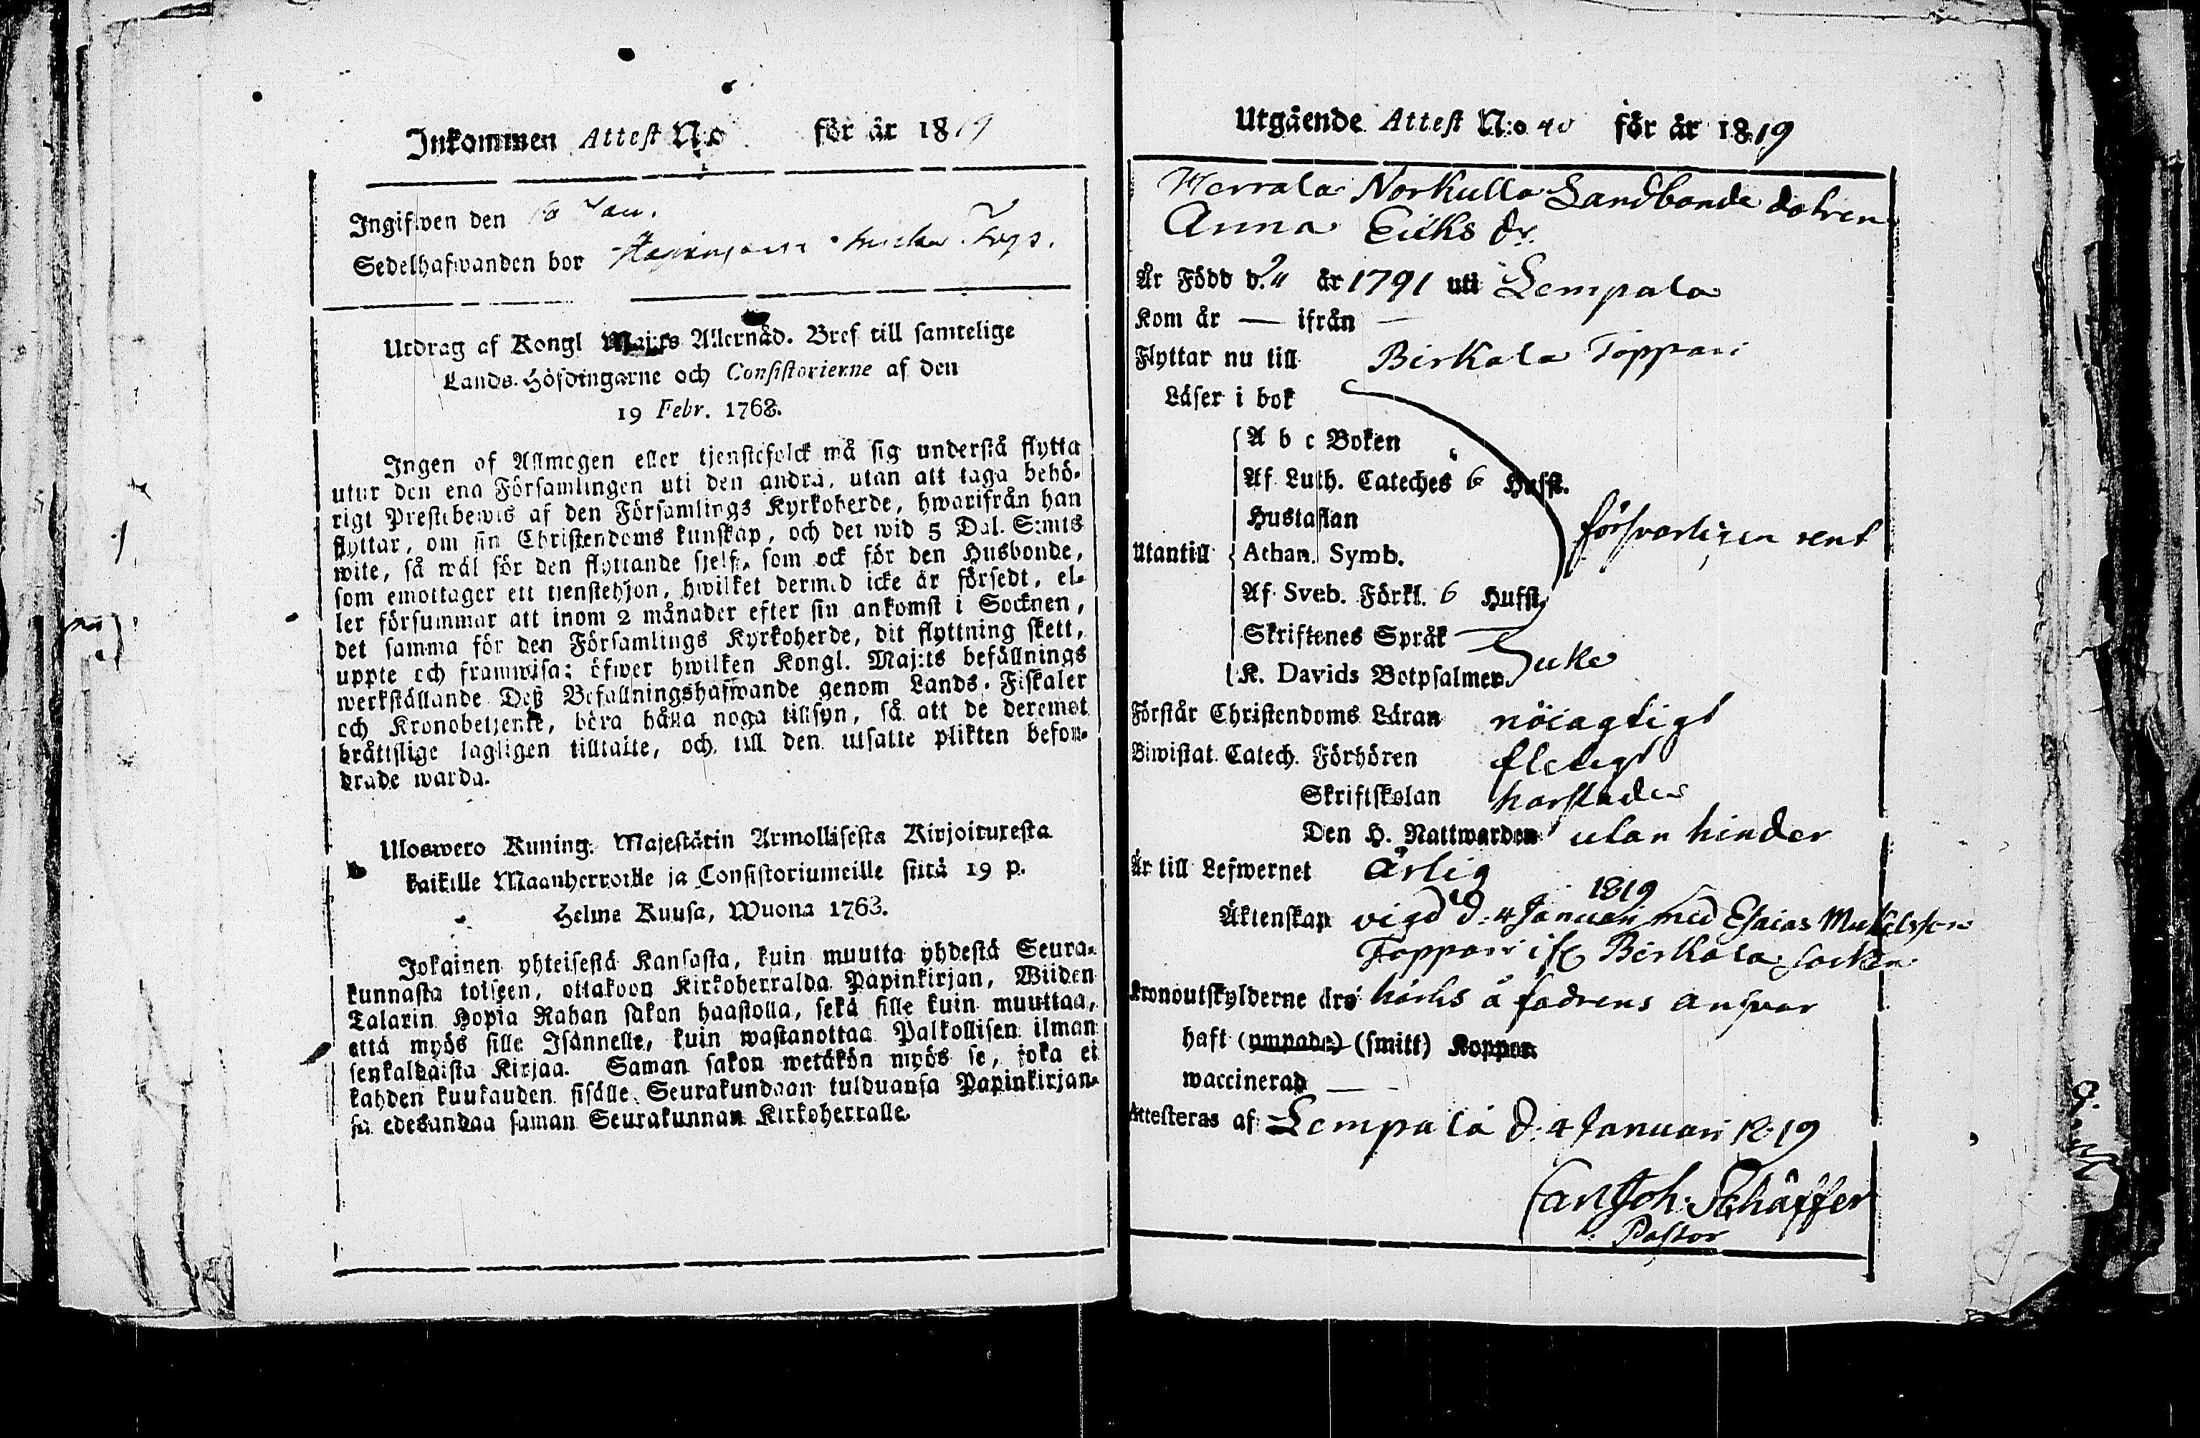 Inkommen Attest N:o för år 1819
Ingifwen den 10 Jan.
Sedelhafwanden bor
Utdrag af Kongl Maj:ts Allernåd. Bref till samtelige
Lands-Höfdingarne och Consistorierne af den
19 Febr. 1768.
Ingen af Allmogen eller tjenstefolck må sig understå flytta
utur den ena Församlingen uti den andra, utan att taga behö-
rigt Prestebewis af den Församlings Kyrkoherde, hwarifrån han
flyttar, om sin Christendoms kunskap, och det wid 5 Dal. S:mts
wite, så wäl för den flyttande sjelf, som ock för den Husbonde,
som emottager ett tjenstehjon, hwilket dermed icke är försedt, el-
ler försummar att inom 2 månader efter sin ankomst i Socknen,
det samma för den Församlings Kyrkoherde, dit flyttning skett,
uppte och framwisa; öfwer hwilken Kongl. Maj:ts befallnings
werkställande Deß Befallningshafwande genom Lands-Fiskaler
och Kronobetjente, böra hålla noga tillsyn, så att de deremot
bråttslige lagligen tilltalte, och till den utsatte plikten befor-
drade warda.
Uloswero Kuning. Majestätin Armollisesta Kirjoituxesta
kaikille Maanherroille ja Consistoriumeille siitä 19 p.
Helme Kuusa, Wuona 1763.
Jokainen yhteisestä Kansasta, kuin muutta yhdestä Seura-
kunnasta toiseen, ottakoon Kirkoherralda Papinkirjan, Wiiden
Talarin Hopia Rahan sakon haastolla, sekä sille kuin muuttaa,
että myös sille Isännelle, kuin wastanottaa Palkollisen ilman
senkaldaista Kirjaa. Saman sakon wetäkön myös se, joka ei
kahden kuukauden sisälle Seurakundaan tulduansa Papinkirjan-
sa edesandaa saman Seurakunnan Kirkoherralle.
Utgående Attest N:o 40 för år 1819
Herrala Norkulla Landbonde dotren
Anna Eriks dr.
Är Född d. " år 1791 uti Lempala
Kom år — ifrån —
Flyttar nu till Birkala Toppari
Läser i bok
A b c Boken
Af Luth. Cateches 6 Hufst.
Hustaflan
försvarligen rent
Utantill Athan. Symb.
Af Sveb. Förkl. 6 Hufst.
Skriftenes Språk
K. Davids Botpsalmer
Förstår Christendoms Läran nöiagtigt
Biwistat Catech. Förhören flitigt
Skriftskolan
Den H. Nattwarden utan hinder
Är till Lefwernet ärlig
1819
Äktenskap vigd d. 4 Januari med Esaias
Toppari if Birkala socken
Kronoutskylderne äro härtils å fadrens ansvar
haft (ympade) (smitt) Koppor
waccinerad —
Attesteras af Lempala d. 4 Januari 1819
Carl Joh: Schäffer
Pastor